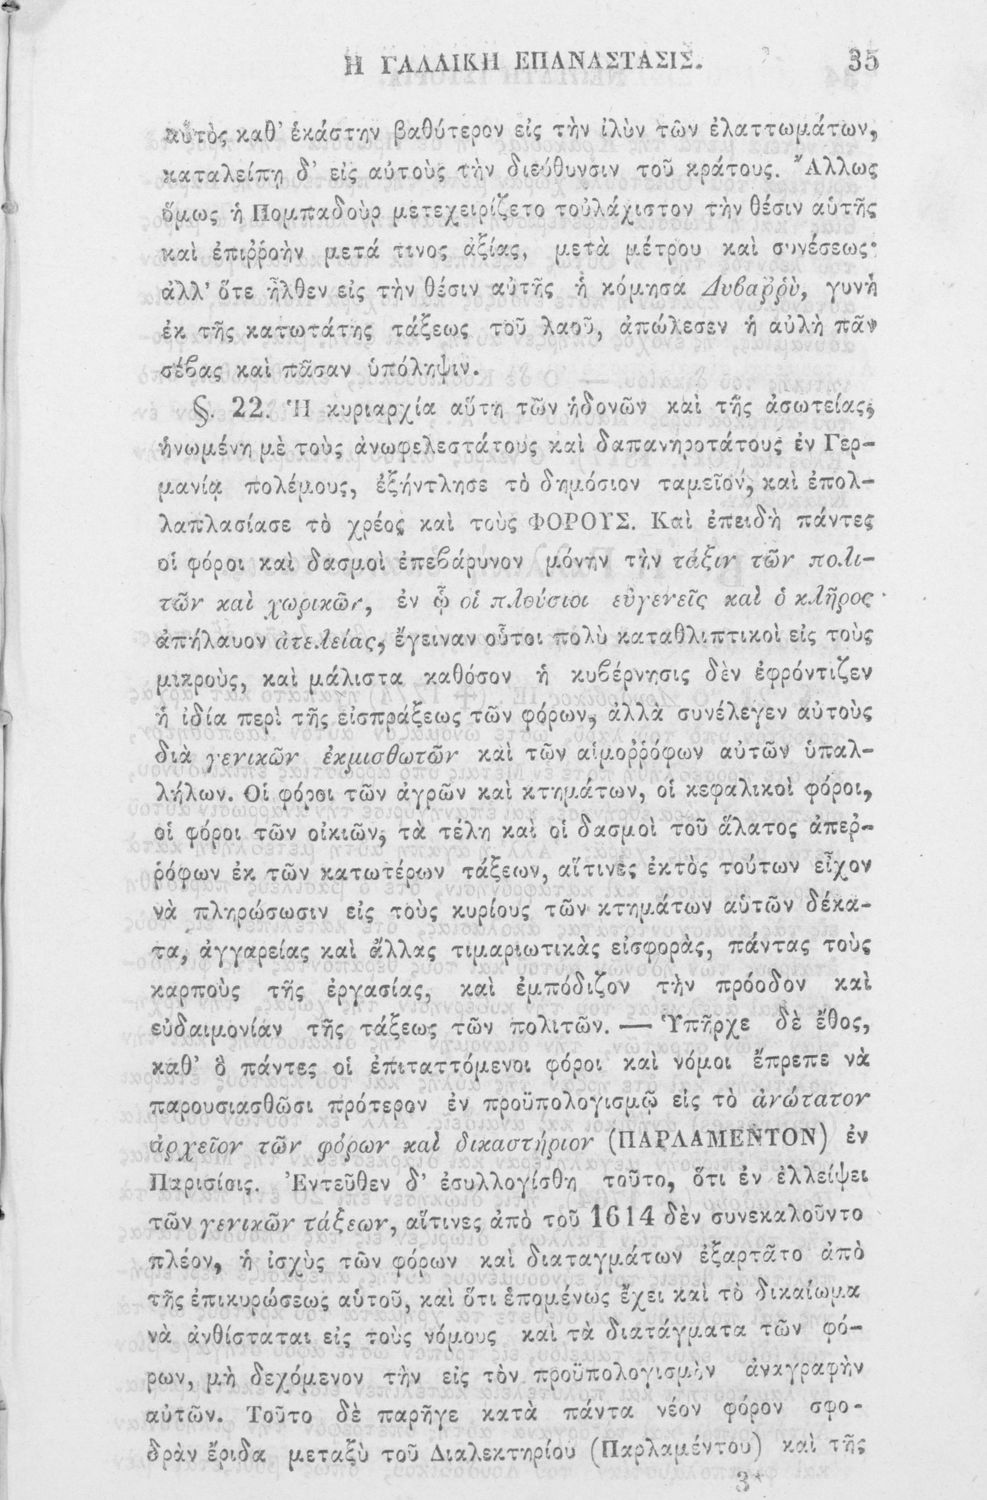 Η ΓΑΛΛΙΚΗ ΕΠΑΝΑΣΤΑΣΙΣ. 35
αὑτὸς καθ' ἑκάστην βαθύτερον εἰς τὴν ἰλὺν τῶν ἐλαττωμάτων,
καταλείπῃ δ' εἰς αὐτοὺς τὴν διεύθυνσιν τοῦ κράτους. Ἄλλως
ὅμως ἡ Πομπαδοὺρ μετεχειρίζετο τοὐλάχιστον τὴν θέσιν αὑτῆς
καὶ ἐπιῤῥοὴν μετά τινος ἀξίας, μετὰ μέτρου καὶ συνέσεως·
ἀλλ' ὅτε ἦλθεν εἰς τὴν θέσιν αὐτῆς ἡ κόμησα Δυβαῤῥὺ, γυνὴ
ἐκ τῆς κατωτάτης τάξεως τοῦ λαοῦ, ἀπώλεσεν ἡ αὐλὴ πᾶν
σέβας καὶ πᾶσαν ὑπόληψιν.
§. 22. Ἡ κυριαρχία αὕτη τῶν ἡδονῶν καὶ τῆς ἀσωτείας,
ἡνωμένη μὲ τοὺς ἀνωφελεστάτους καὶ δαπανηροτάτους ἐν Γερ-
μανίᾳ πολέμους, ἐξήντλησε τὸ δημόσιον ταμεῖον, καὶ ἐπολ-
λαπλασίασε τὸ χρέος καὶ τοὺς ΦΟΡΟΥΣ. Καὶ ἐπειδὴ πάντες
οἱ φόροι καὶ δασμοὶ ἐπεβάρυνον μόνην τὴν τάξιν τῶν πολι-
τῶν καὶ χωρικῶν, ἐν ᾧ οἱ πλούσιοι εὐγενεῖς καὶ ὁ κλῆρος
ἀπήλαυον ἀτελείας, ἔγειναν οὗτοι πολὺ καταθλιπτικοὶ εἰς τοὺς
μικροὺς, καὶ μάλιστα καθόσον ἡ κυβέρνησις δὲν ἐφρόντιζεν
ἡ ἰδία περὶ τῆς εἰσπράξεως τῶν φόρων, ἀλλὰ συνέλεγεν αὐτοὺς
διὰ γενικῶν ἐκμισθωτῶν καὶ τῶν αἱμοῤῥόφων αὐτῶν ὑπαλ-
λήλων. Οἱ φόροι τῶν ἀγρῶν καὶ κτημάτων, οἱ κεφαλικοὶ φόροι,
οἱ φόροι τῶν οἰκιῶν, τὰ τέλη καὶ οἱ δασμοὶ τοῦ ἅλατος ἀπεῤ-
ῥόφων ἐκ τῶν κατωτέρων τάξεων, αἵτινες ἐκτὸς τούτων εἶχον
νὰ πληρώσωσιν εἰς τοὺς κυρίους τῶν κτημάτων αὑτῶν δέκα-
τα, ἀγγαρείας καὶ ἄλλας τιμαριωτικὰς εἰσφορὰς, πάντας τοὺς
καρποὺς τῆς ἐργασίας, καὶ ἐμπόδιζον τὴν πρόοδον καὶ
εὐδαιμονίαν τῆς τάξεως τῶν πολιτῶν. — Ὑπῆρχε δὲ ἔθος,
καθ' ὃ πάντες οἱ ἐπιταττόμενοι φόροι καὶ νόμοι ἔπρεπε νὰ
παρουσιασθῶσι πρότερον ἐν προϋπολογισμῷ εἰς τὸ ἀνώτατον
ἀρχεῖον τῶν φόρων καὶ δικαστήριον (ΠΑΡΛΑΜΕΝΤΟΝ) ἐν
Παρισίοις. Ἐντεῦθεν δ' ἐσυλλογίσθη τοῦτο, ὅτι ἐν ἐλλείψει
τῶν γενικῶν τάξεων, αἵτινες ἀπὸ τοῦ 1614 δὲν συνεκαλοῦντο
πλέον, ἡ ἰσχὺς τῶν φόρων καὶ διαταγμάτων ἐξαρτᾶτο ἀπὸ
τῆς ἐπικυρώσεως αὑτοῦ, καὶ ὅτι ἑπομένως ἔχει καὶ τὸ δικαίωμα
νὰ ἀνθίσταται εἰς τοὺς νόμους καὶ τὰ διατάγματα τῶν φό-
ρων, μὴ δεχόμενον τὴν εἰς τὸν προϋπολογισμὸν ἀναγραφὴν
αὐτῶν. Τοῦτο δὲ παρῆγε κατὰ πάντα νέον φόρον σφο-
δρὰν ἔριδα μεταξὺ τοῦ Διαλεκτηρίου (Παρλαμέντου) καὶ τῆς
3*